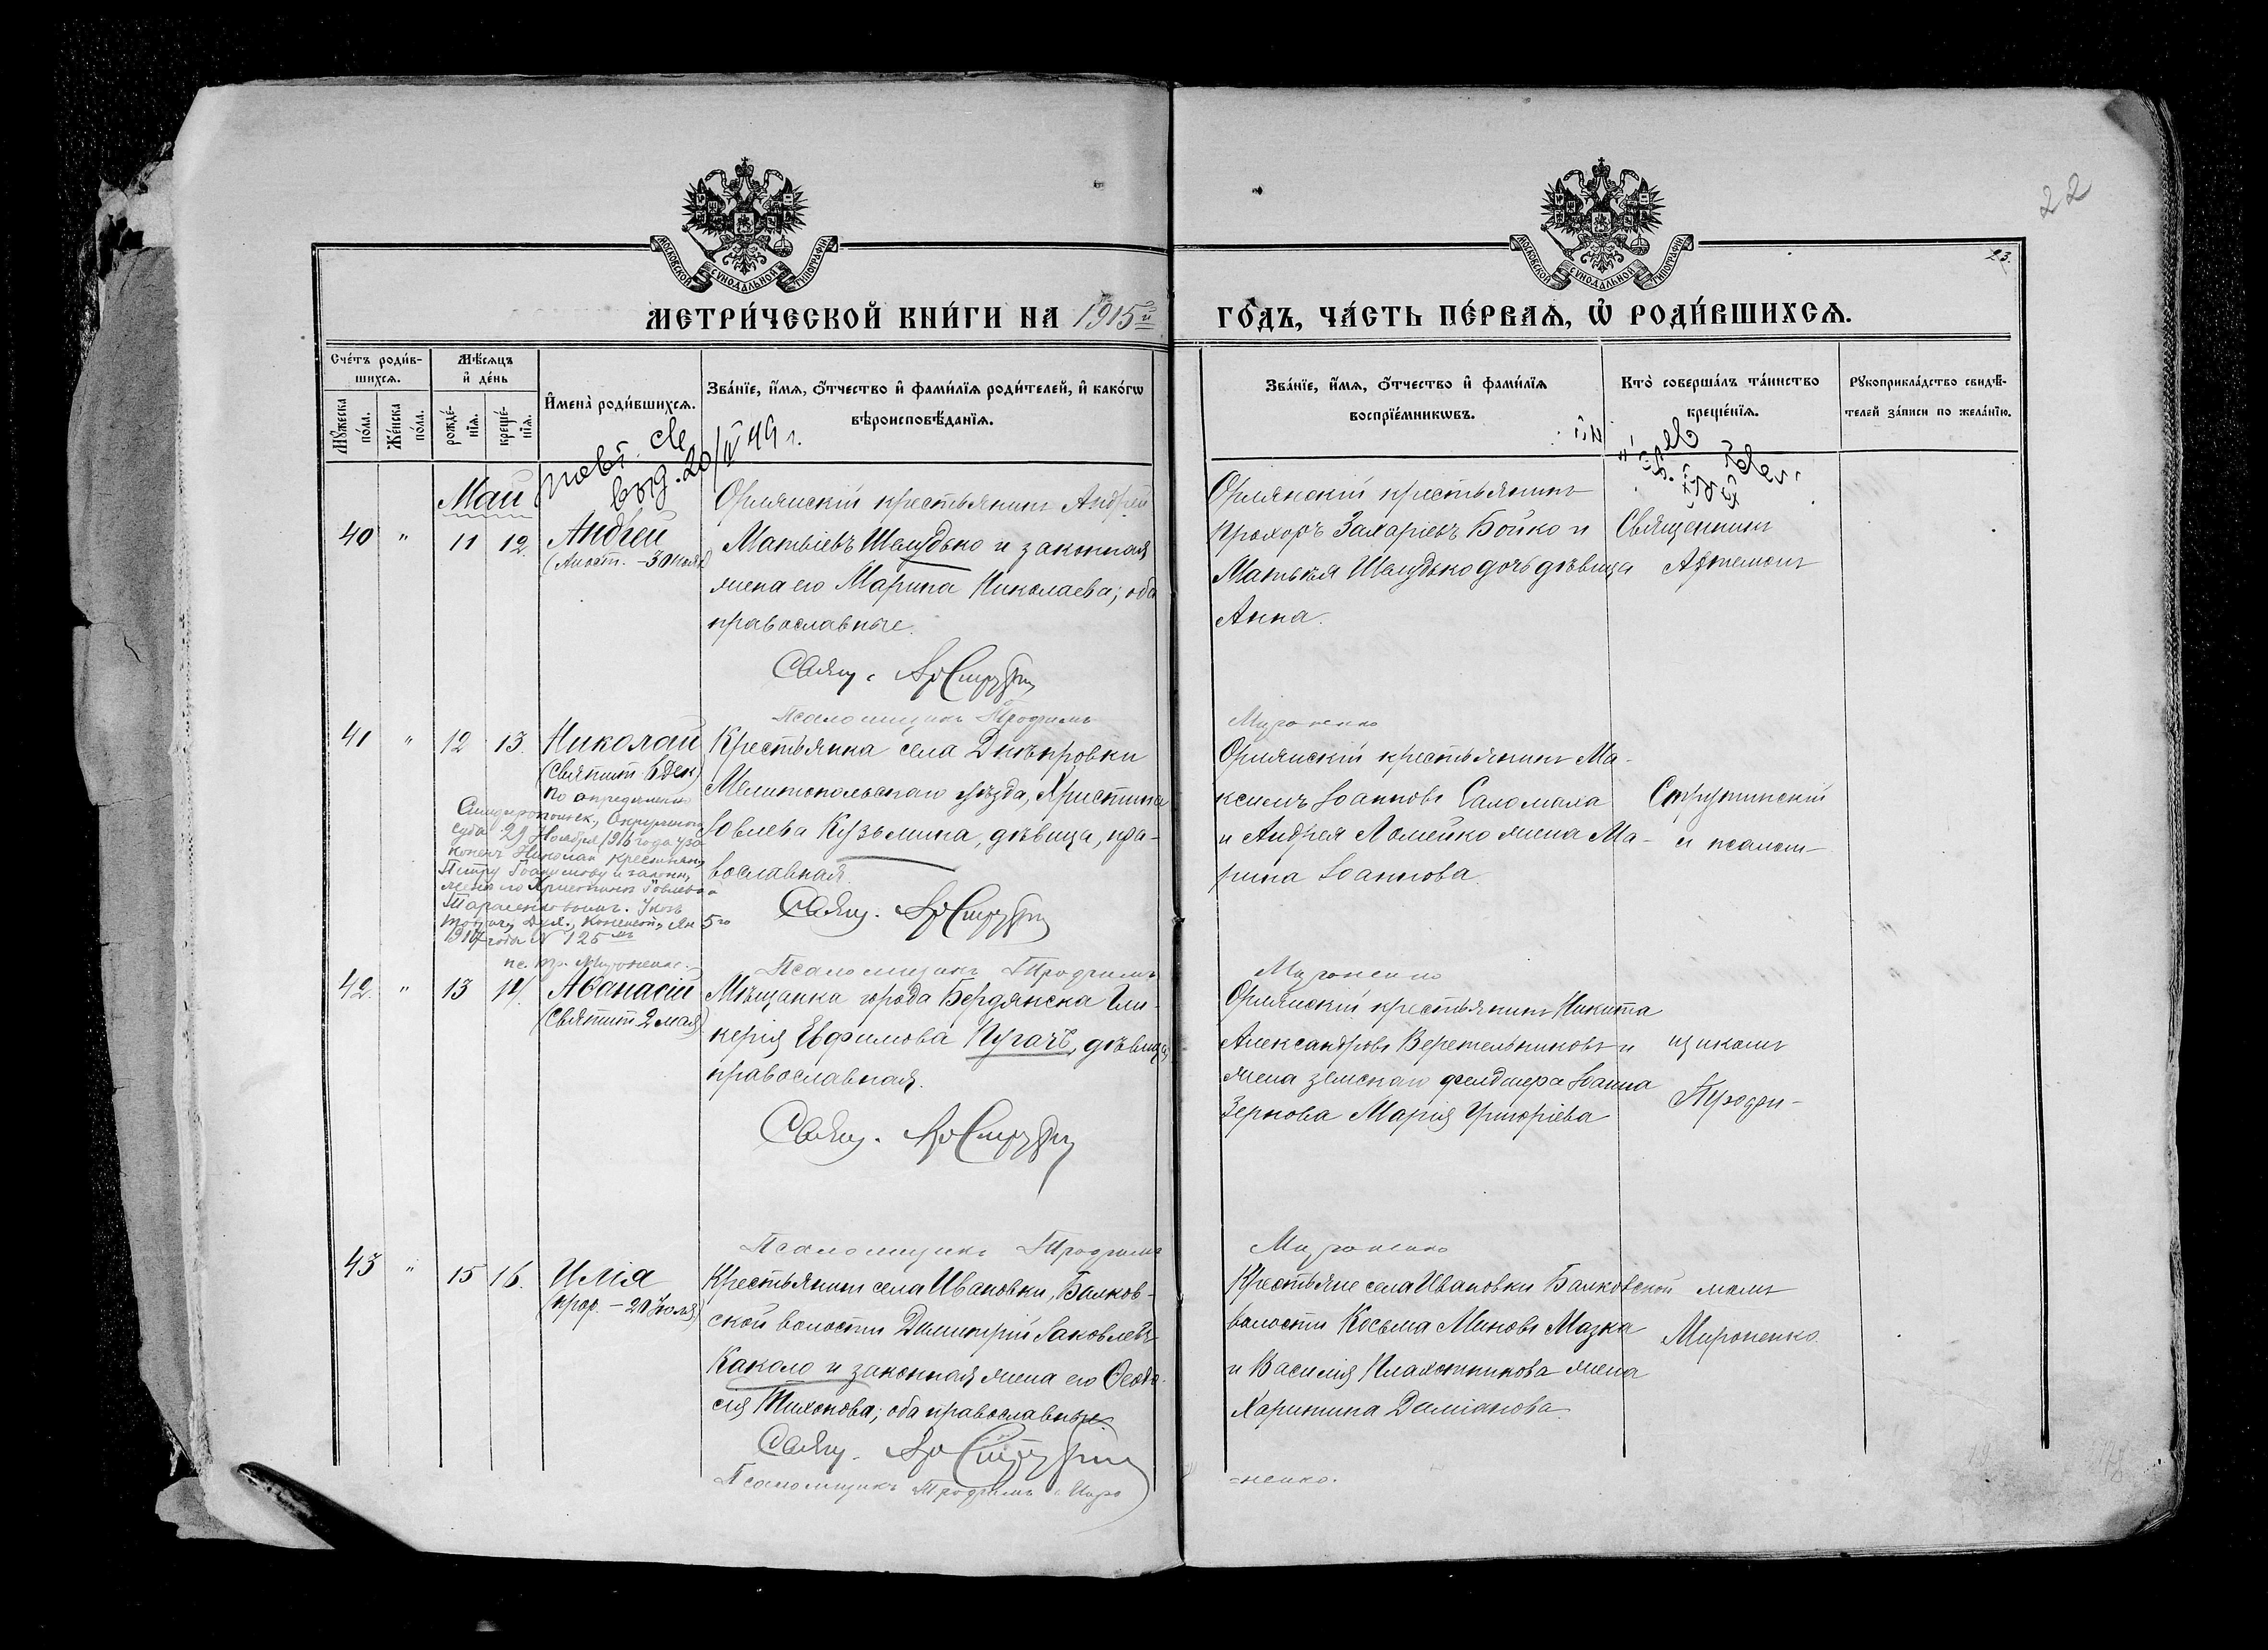 22
23.
МОСКОВСКОЙ СѴНОДАЛЬНОЙ ТИПОГРАФІИ
МОСКОВСКОЙ СѴНОДАЛЬНОЙ ТИПОГРАФІИ
МЕТРИ́ЧЕСКОЙ КНИ́ГИ НА 1915й
ГО́ДЪ, ЧА́СТЬ ПЕ́РВАѦ, Ѡ РОДИ́ВШИХСѦ.
Сче́тъ роди́в-
шихсѧ.
Мѣ́сѧцъ
и де́нь
Мꙋ́жеска по́ла.
Же́нска по́ла.
рожде́-
нїѧ.
креще́-
нїѧ.
И҆мена̀ роди́вшихсѧ.
Зва́нїе, и҆́мѧ, ѻ҆́тчество и҆ фами́лїѧ роди́телей, и҆ како́гѡ
вѣроисповѣ́данїѧ.
Зва́нїе, и҆́мѧ, ѻ҆́тчество и҆ фами́лїѧ
воспрїе́мникѡвъ.
Кто̀ соверша́лъ та́инство
креще́нїѧ.
Рꙋкоприкла́дство свидѣ́-
телей за́писи по жела́нїю.
повт. св
выд. 20/IV 49 г.
Май
40 " 11 12. Андрей
(Апост. – 30 ноя
Орлянскій крестьянинъ Андрей
Матвіевъ Шелудько и законная
жена его Марина Николаева; оба
православные.
Свящ. Ар Струт
Псаломщикъ Трофимъ Мироненко
Орлянскій крестьянинъ
Прохоръ Захаріевъ Бойко и
Матвѣя Шелудько дочь дѣвица
Анна.
Священникъ
Артемонъ
41 " 12 13. Николай
(Святит 6 Дек)
По определенію
Симферопольск. Окружного
суда 29 Ноября 1916 года уза
коненъ Николай крестьянину
Петру Іоакимову и законн.
жене его Христинѣ Іовлевой
Указъ
Консист. Ян 5го
1917 года N 125
пс. Тр. Мироненко.
Крестьянка села Днѣпровки
Мелитопольскаго уѣзда, Христина
Іовлева Кузьмина, дѣвица, пра-
вославная.
Свящ. Ар Струт
Псаломщикъ Трофимъ Мироненко
Орлянскій крестьянинъ Ма-
ксимъ Іоанновъ Саломаха
и Андрея Ломейко жена Ма-
рина Іоаннова.
Струтинскій
и псалом-
42. " 13 14. Аѳанасій
(Святит 2 мая)
Мѣщанка города Бердянска Гли-
керія Евфимова Пугачъ, дѣвица
православная.
Свящ. Ар Струт
Псаломщикъ Трофимъ Мироненко
Орлянскій крестьянинъ Никита
Александровъ Веретельниковъ и
жена земскаго фелдшера Іоанна
Зернова Марія Григоріева
щикомъ
Трофи-
43 " 15 16. Илія
(прор. – 20 Іюля)
Крестьянинъ села Ивановки, Балков-
ской волости Димитрій Іаковлевъ
Какало и законная жена его Ѳеодо-
сія Тихонова; оба православные.
Свящ. Ар Струт
Псаломщикъ Трофимъ Миро
-ненко.
Крестьяне села Ивановки Балковской
волости Косьма Миновъ Мазка
и Василія Плахотникова жена
Харитина Даміанова.
момъ
Мироненко.